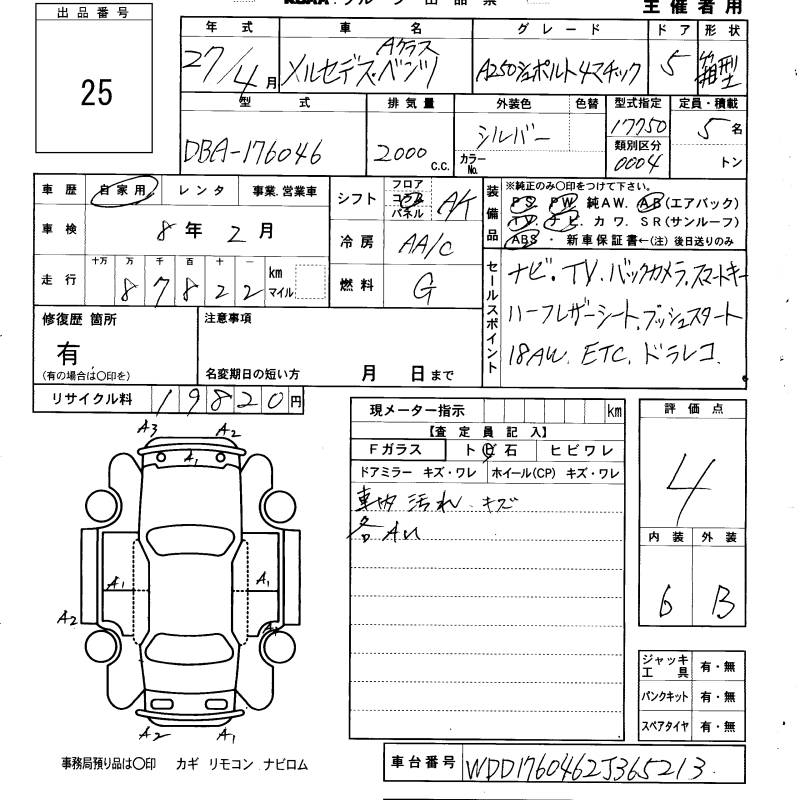 主催者用
出品番号
25
年式 車名 グレード ドア 形状
27/4月 メルセデス・ベンツ Aクラス A250シュポルト4マチック 5 箱型
型式 排気量 外装色 色替 型式指定 定員・積載
DBA-176046 2000 c.c. シルバー 17750 5名
カラーNo. 類別区分 0004 トン
車歴 自家用 レンタ 事業.営業車
車検 8年2月
走行 十万 万 千 百 十 一 km マイル
87822
シフト フロア コラム パネル A/T
冷房 AA/C
燃料 G
装備品 ※純正のみ○印をつけて下さい。
PS. PW 純AW. AB(エアバック)
TV. ナビ. カワ. SR(サンルーフ)
ABS ・ 新車保証書←(注)後日送りのみ
セールスポイント
ナビ・TV.バックカメラ.スマートキー
ハーフレザーシート.プッシュスタート
18AW. ETC. ドラレコ.
修復歴 箇所
有
(有の場合は○印を)
注意事項
名変期日の短い方 月 日まで
リサイクル料 19820円
現メーター指示 km
【査定員記入】
Fガラス ト ビ 石 ヒビワレ
ドアミラー キズ・ワレ ホイール(CP) キズ・ワレ
車内 汚れ.キズ
各AU
評価点
4
内装 外装
6 B
ジャッキ工具 有・無
パンクキット 有・無
スペアタイヤ 有・無
A3 A2
A1
A1 A1
A2
A2 A1
事務局預り品は○印 カギ リモコン ナビロム
車台番号 WDD1760462J365213